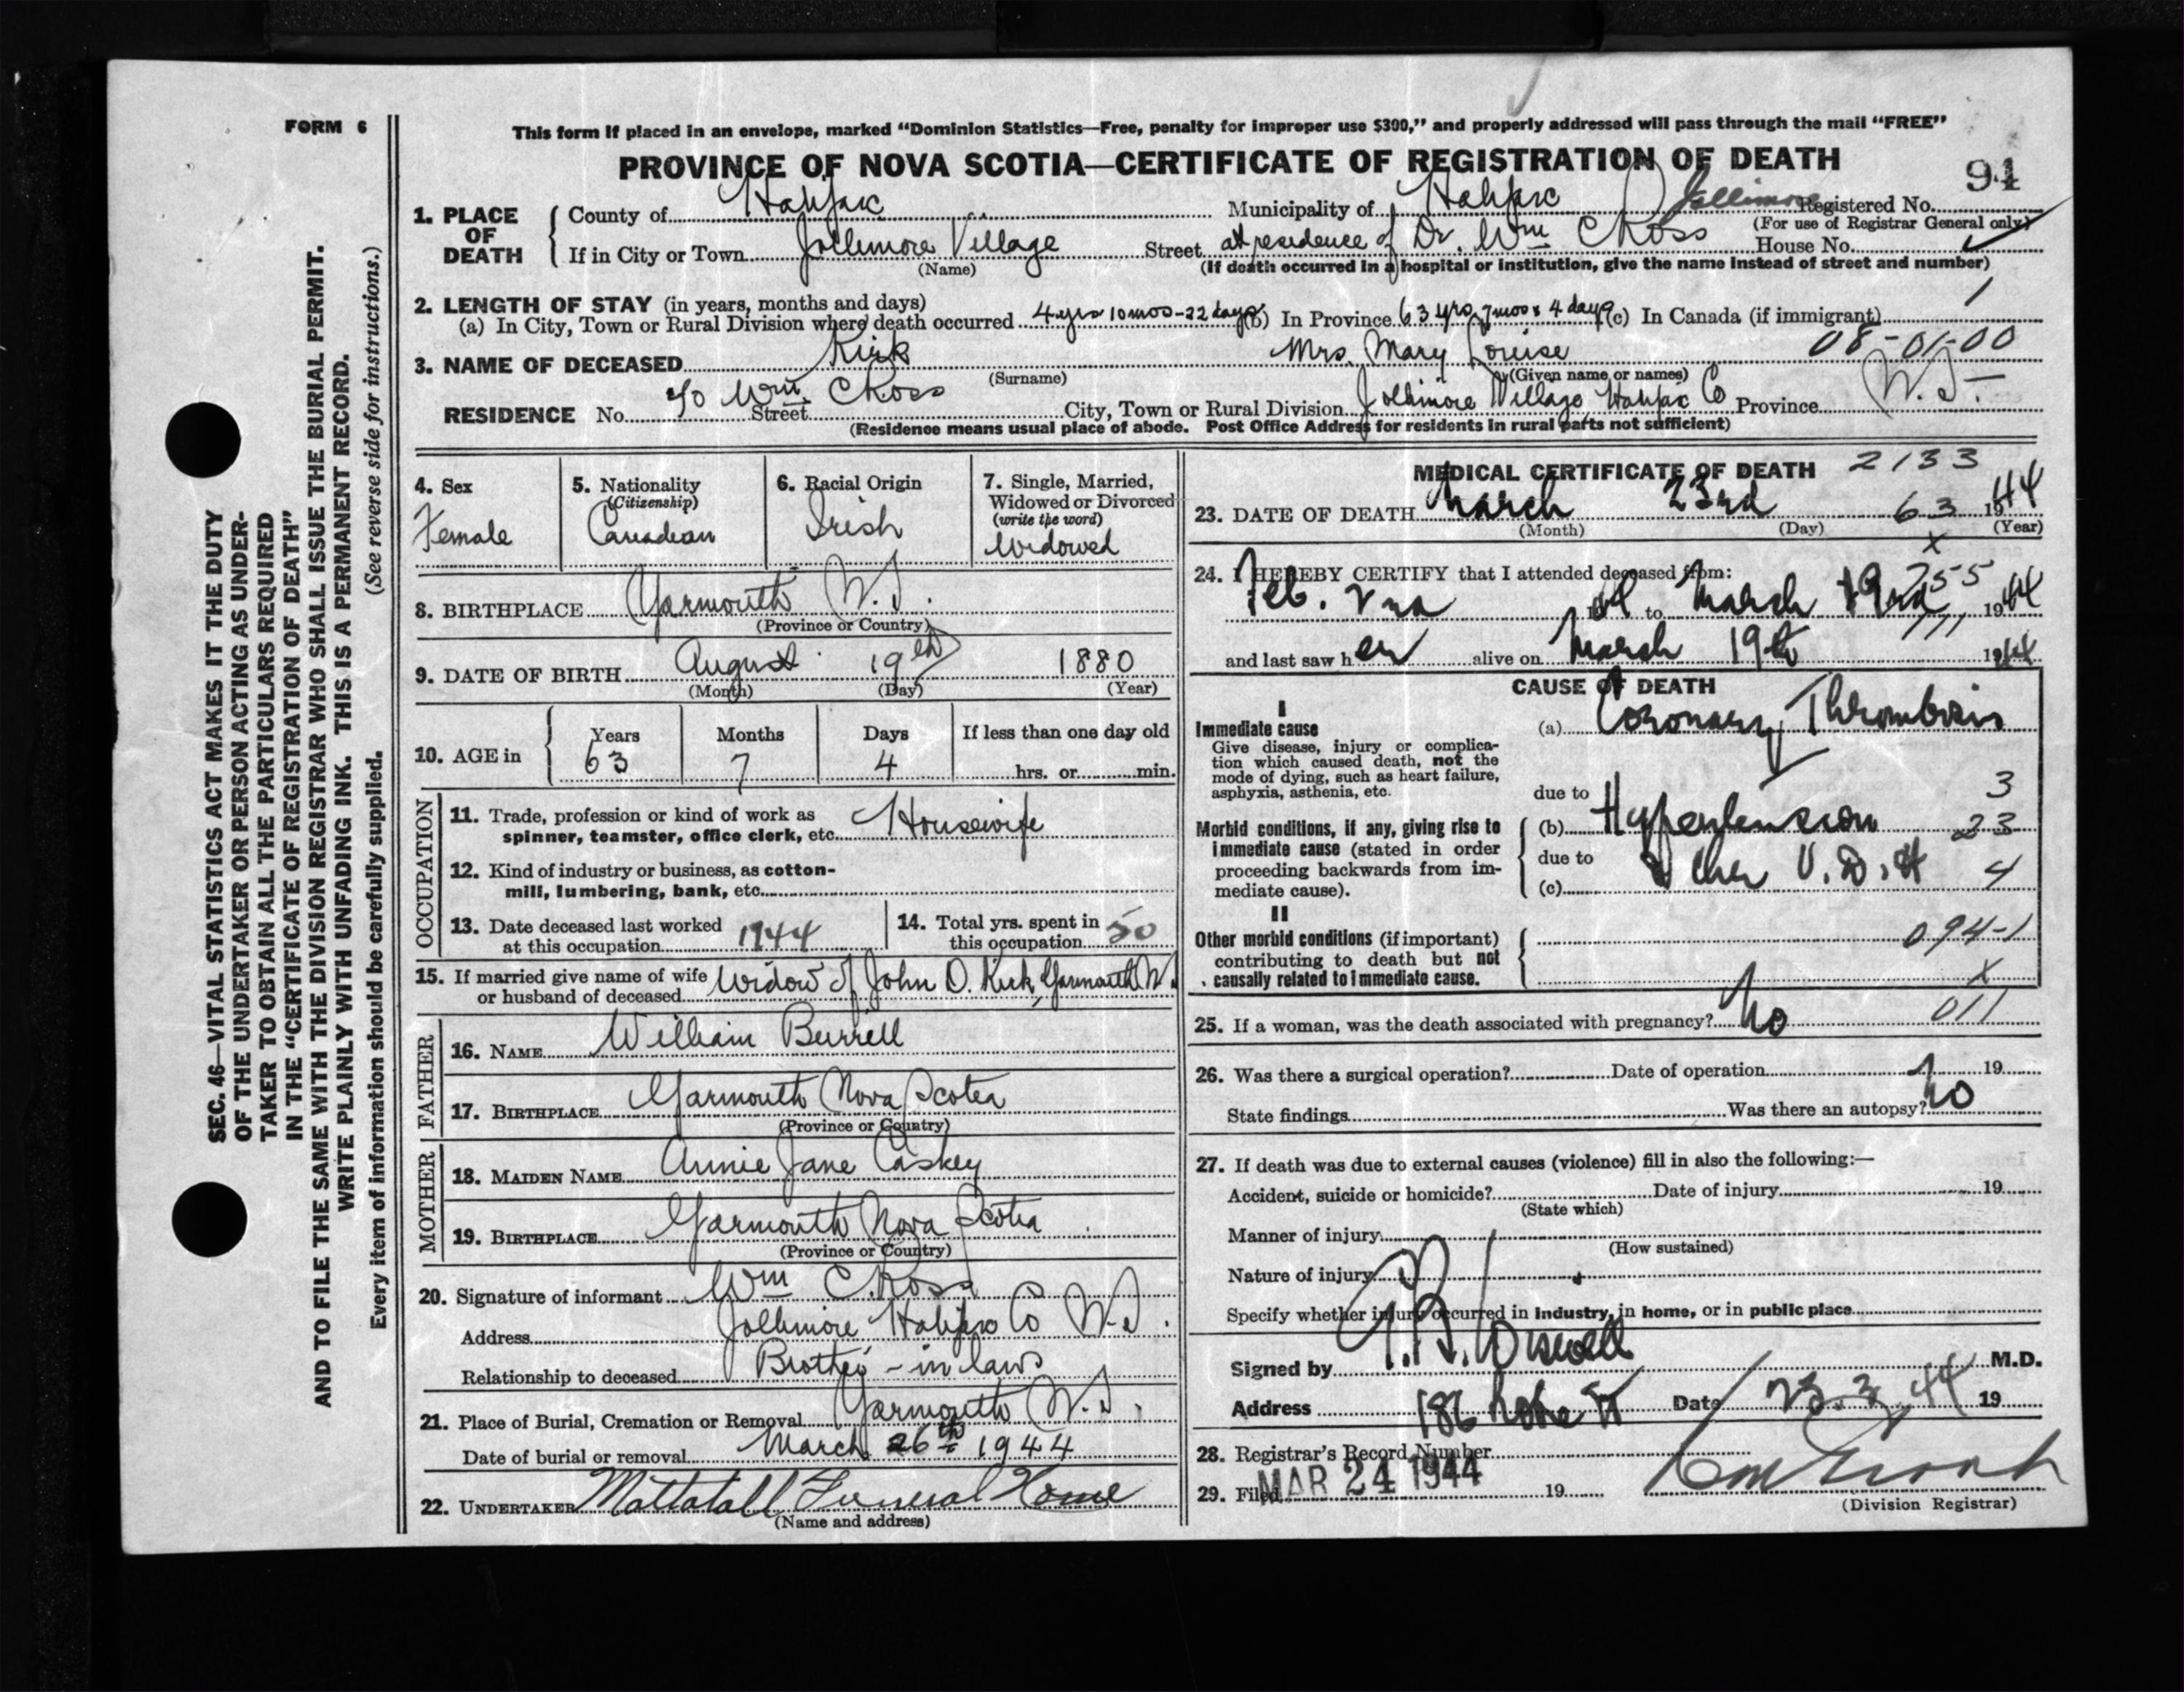 FORM 6
This form if placed in an envelope, marked “Dominion Statistics—Free, penalty for improper use $300,” and properly addressed will pass through the mail “FREE”
PROVINCE OF NOVA SCOTIA—CERTIFICATE OF REGISTRATION OF DEATH
94
1. PLACE OF DEATH
County of Halifax Municipality of Halifax Jollimore Registered No.
(For use of Registrar General only)
If in City or Town Jollimore Village Street at residence of Dr. Wm C Ross House No.
(Name) (If death occurred in a hospital or institution, give the name instead of street and number)
2. LENGTH OF STAY (in years, months and days)
(a) In City, Town or Rural Division where death occurred 4 yrs 10 mos - 22 days (b) In Province 63 yrs 7 mos & 4 days (c) In Canada (if immigrant) 1
3. NAME OF DECEASED Kirk Mrs. Mary Louise 08-01-00
(Surname) (Given name or names)
RESIDENCE No. c/o Wm. C Ross Street City, Town or Rural Division Jollimore Village, Halifax Co Province N.S.
(Residence means usual place of abode. Post Office Address for residents in rural parts not sufficient)
4. Sex
Female
5. Nationality
(Citizenship)
Canadian
6. Racial Origin
Irish
7. Single, Married,
Widowed or Divorced
(write the word)
Widowed
8. BIRTHPLACE Yarmouth N.S.
(Province or Country)
9. DATE OF BIRTH August 19th 1880
(Month) (Day) (Year)
10. AGE in
Years Months Days If less than one day old
63 7 4 hrs. or min.
OCCUPATION
11. Trade, profession or kind of work as
spinner, teamster, office clerk, etc. Housewife
12. Kind of industry or business, as cotton-
mill, lumbering, bank, etc.
13. Date deceased last worked
at this occupation 1944
14. Total yrs. spent in
this occupation 50
15. If married give name of wife
or husband of deceased Widow of John D. Kirk, Yarmouth N.S
FATHER
16. NAME William Burrell
17. BIRTHPLACE Yarmouth Nova Scotia
(Province or Country)
MOTHER
18. MAIDEN NAME Annie Jane Caskey
19. BIRTHPLACE Yarmouth Nova Scotia
(Province or Country)
20. Signature of informant Wm C. Ross
Address Jollimore Halifax Co N.S.
Relationship to deceased Brother-in law
21. Place of Burial, Cremation or Removal Yarmouth N.S.
Date of burial or removal March 26th 1944
22. UNDERTAKER Mattatall Funeral Home
(Name and address)
MEDICAL CERTIFICATE OF DEATH 2133
23. DATE OF DEATH March 23rd 63 1944
(Month) (Day) (Year)
x
24. I HEREBY CERTIFY that I attended deceased from:
755
Feb. 2nd to March 1944
111
and last saw her alive on March 19th 1944
CAUSE OF DEATH
I
Immediate cause
Give disease, injury or complica-
tion which caused death, not the
mode of dying, such as heart failure,
asphyxia, asthenia, etc.
(a) Coronary Thrombosis
due to 3
Morbid conditions, if any, giving rise to
immediate cause (stated in order
proceeding backwards from im-
mediate cause).
(b) Hypertension 23
due to
(c) V.D.H 4
II
Other morbid conditions (if important)
contributing to death but not
causally related to immediate cause.
094-1
x
25. If a woman, was the death associated with pregnancy? No 011
26. Was there a surgical operation? Date of operation 19
State findings Was there an autopsy? No
27. If death was due to external causes (violence) fill in also the following:—
Accident, suicide or homicide? Date of injury 19
(State which)
Manner of injury
(How sustained)
Nature of injury
Specify whether injury occurred in industry, in home, or in public place
Signed by M.D.
Address 186 Date 23.3.44 19
28. Registrar's Record Number
29. Filed MAR 24 1944 19
(Division Registrar)
SEC. 46—VITAL STATISTICS ACT MAKES IT THE DUTY
OF THE UNDERTAKER OR PERSON ACTING AS UNDER-
TAKER TO OBTAIN ALL THE PARTICULARS REQUIRED
IN THE “CERTIFICATE OF REGISTRATION OF DEATH”
AND TO FILE THE SAME WITH THE DIVISION REGISTRAR WHO SHALL ISSUE THE BURIAL PERMIT.
WRITE PLAINLY WITH UNFADING INK. THIS IS A PERMANENT RECORD.
Every item of information should be carefully supplied. (See reverse side for instructions.)